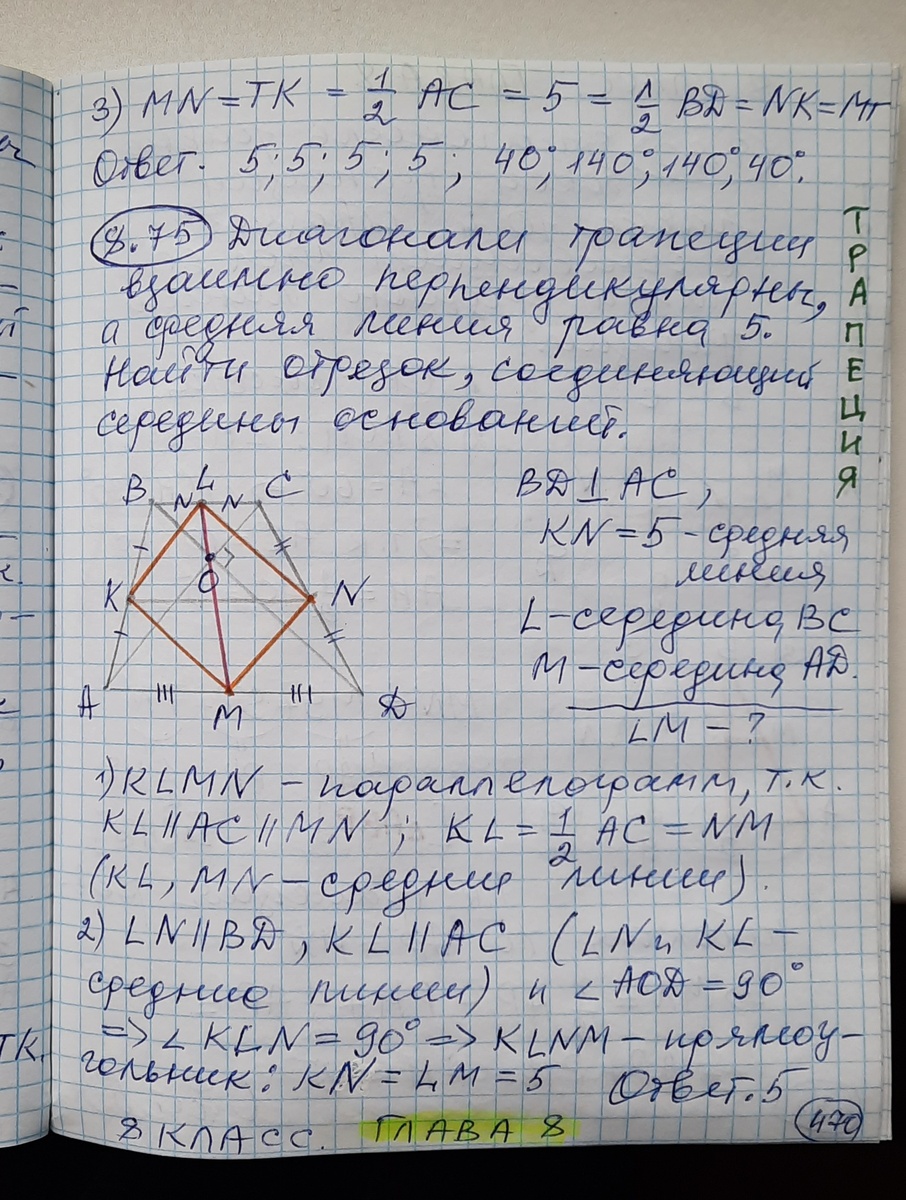 3) MN = TK = 1/2 AC = 5 = 1/2 BD = NK = MT
Ответ. 5; 5; 5; 5; 40°, 140°, 140°, 40°.
8.75 Диагонали трапеции
взаимно перпендикулярны,
а средняя линия равна 5.
Найти отрезок, соединяющий
середины оснований.
ТРАПЕЦИЯ
B L C
N N
O
K N
A M D
BD ⊥ AC,
KN = 5 - средняя
линия
L - середина BC
M - середина AD.
LM - ?
1) KLMN - параллелограмм, т.к.
KL || AC || MN ; KL = 1/2 AC = NM
(KL, MN - средние линии).
2) LN || BD, KL || AC (LN и KL -
средние линии) и ∠AOD = 90°
=> ∠KLN = 90° => KLNM - прямоу-
гольник: KN = LM = 5 Ответ. 5
8 КЛАСС. ГЛАВА 8
470
TK.